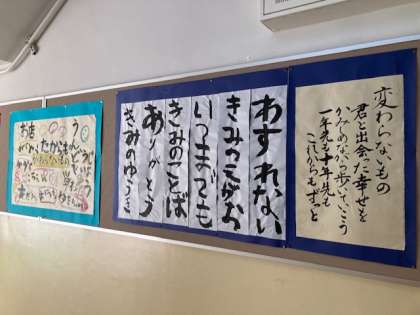 変わらないもの
君と出会った幸せを
かみしめながら歩いていこう
一年先も十年先も
これからもずっと
わすれない
きみのえがお
いつまでも
きみのことば
ありがとう
きみのゆうき
かわらないもの